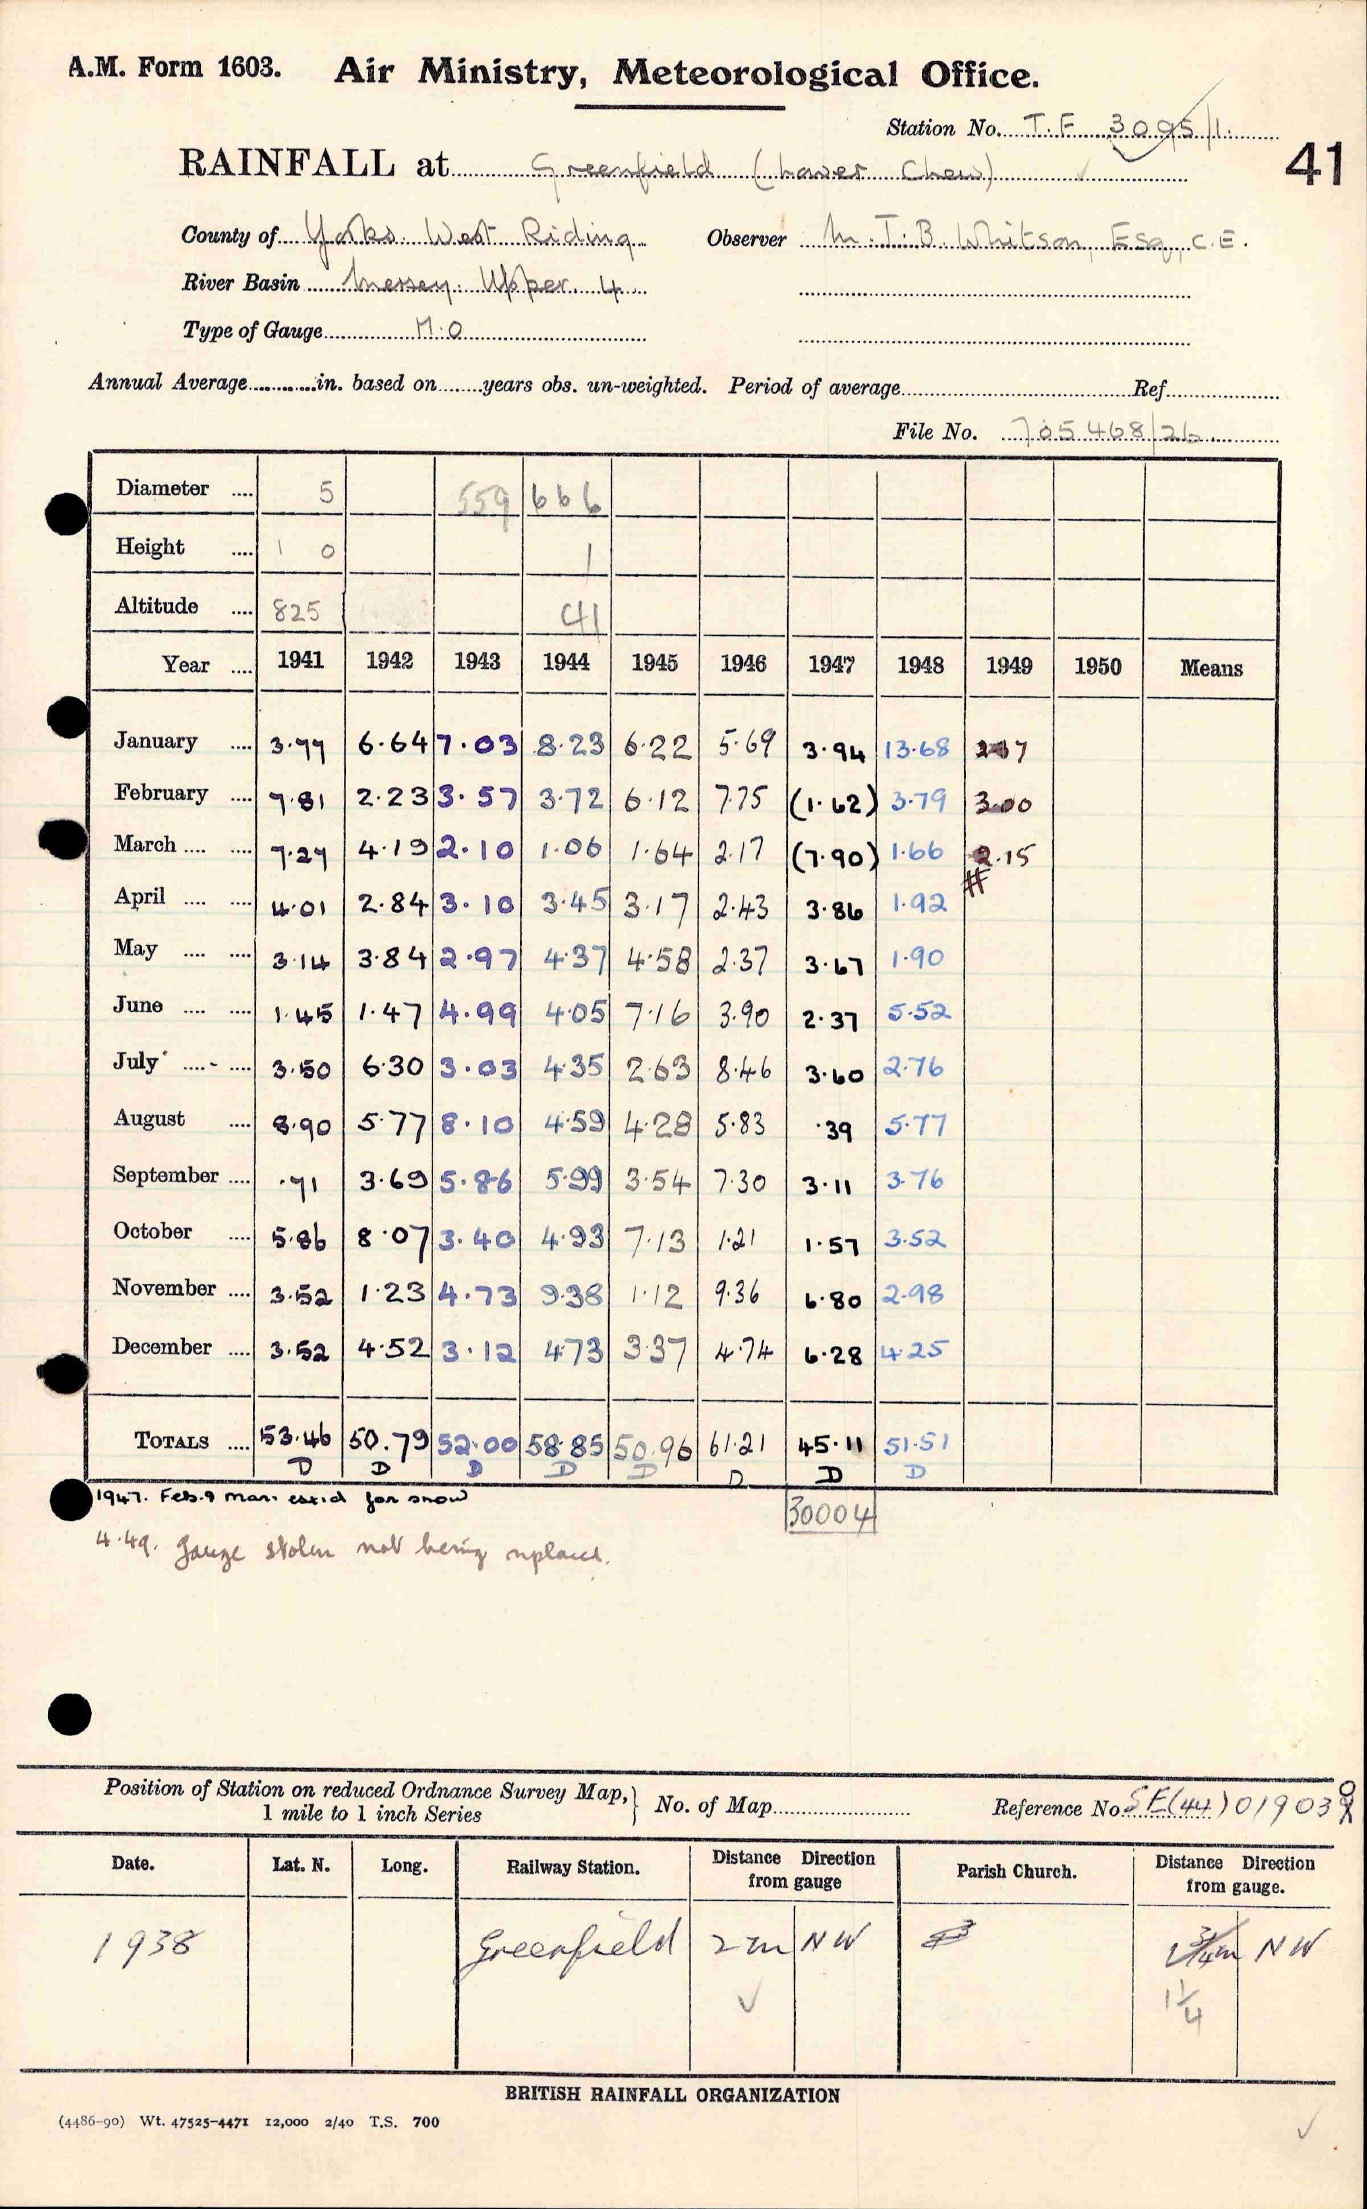 A.M. Form 1603. Air Ministry, Meteorological Office.
Station No. T.F 3095/1.
41
RAINFALL at Greenfield (Lower Chew)
County of Yorks. West Riding Observer M.T.B. Whitson, Esq., C.E.
River Basin Mersey. Upper. 4
Type of Gauge M.O
Annual Average in. based on years obs. un-weighted. Period of average Ref.
File No. 705468/26
Diameter .... 5 559 666
Height .... 1 0 1
Altitude .... 825 41
Year .... 1941 1942 1943 1944 1945 1946 1947 1948 1949 1950 Means
January .... 3.77 6.64 7.03 8.23 6.22 5.69 3.94 13.68
February .... 7.81 2.23 3.57 3.72 6.12 7.75 (1.62) 3.79 3.00
March .... .... 7.27 4.19 2.10 1.06 1.64 2.17 (7.90) 1.66 2.15
#
April .... .... 4.01 2.84 3.10 3.45 3.17 2.43 3.86 1.92
May .... .... 3.14 3.84 2.97 4.37 4.58 2.37 3.67 1.90
June .... .... 1.45 1.47 4.99 4.05 7.16 3.90 2.37 5.52
July .... .... 3.50 6.30 3.03 4.35 2.63 8.46 3.60 2.76
August .... 8.90 5.77 8.10 4.59 4.28 5.83 .39 5.77
September .... .71 3.69 5.86 5.99 3.54 7.30 3.11 3.76
October .... 5.86 8.07 3.40 4.93 7.13 1.21 1.57 3.52
November .... 3.52 1.23 4.73 9.38 1.12 9.36 6.80 2.98
December .... 3.52 4.52 3.12 4.73 3.37 4.74 6.28 4.25
TOTALS .... 53.46 50.79 52.00 58.85 50.96 61.21 45.11 51.51
D D D D D D D D
1947. Feb. & Mar. estd for snow
30004
4.49. Gauge stolen not being replaced.
Position of Station on reduced Ordnance Survey Map,} No. of Map Reference No. SE(44)01903
1 mile to 1 inch Series
Date. Lat. N. Long. Railway Station. Distance Direction from gauge Parish Church. Distance Direction from gauge.
1938 Greenfield 2 m NW 3/4 m NW
1 1/4
BRITISH RAINFALL ORGANIZATION
(4486-90) Wt. 47525-4471 12,000 2/40 T.S. 700